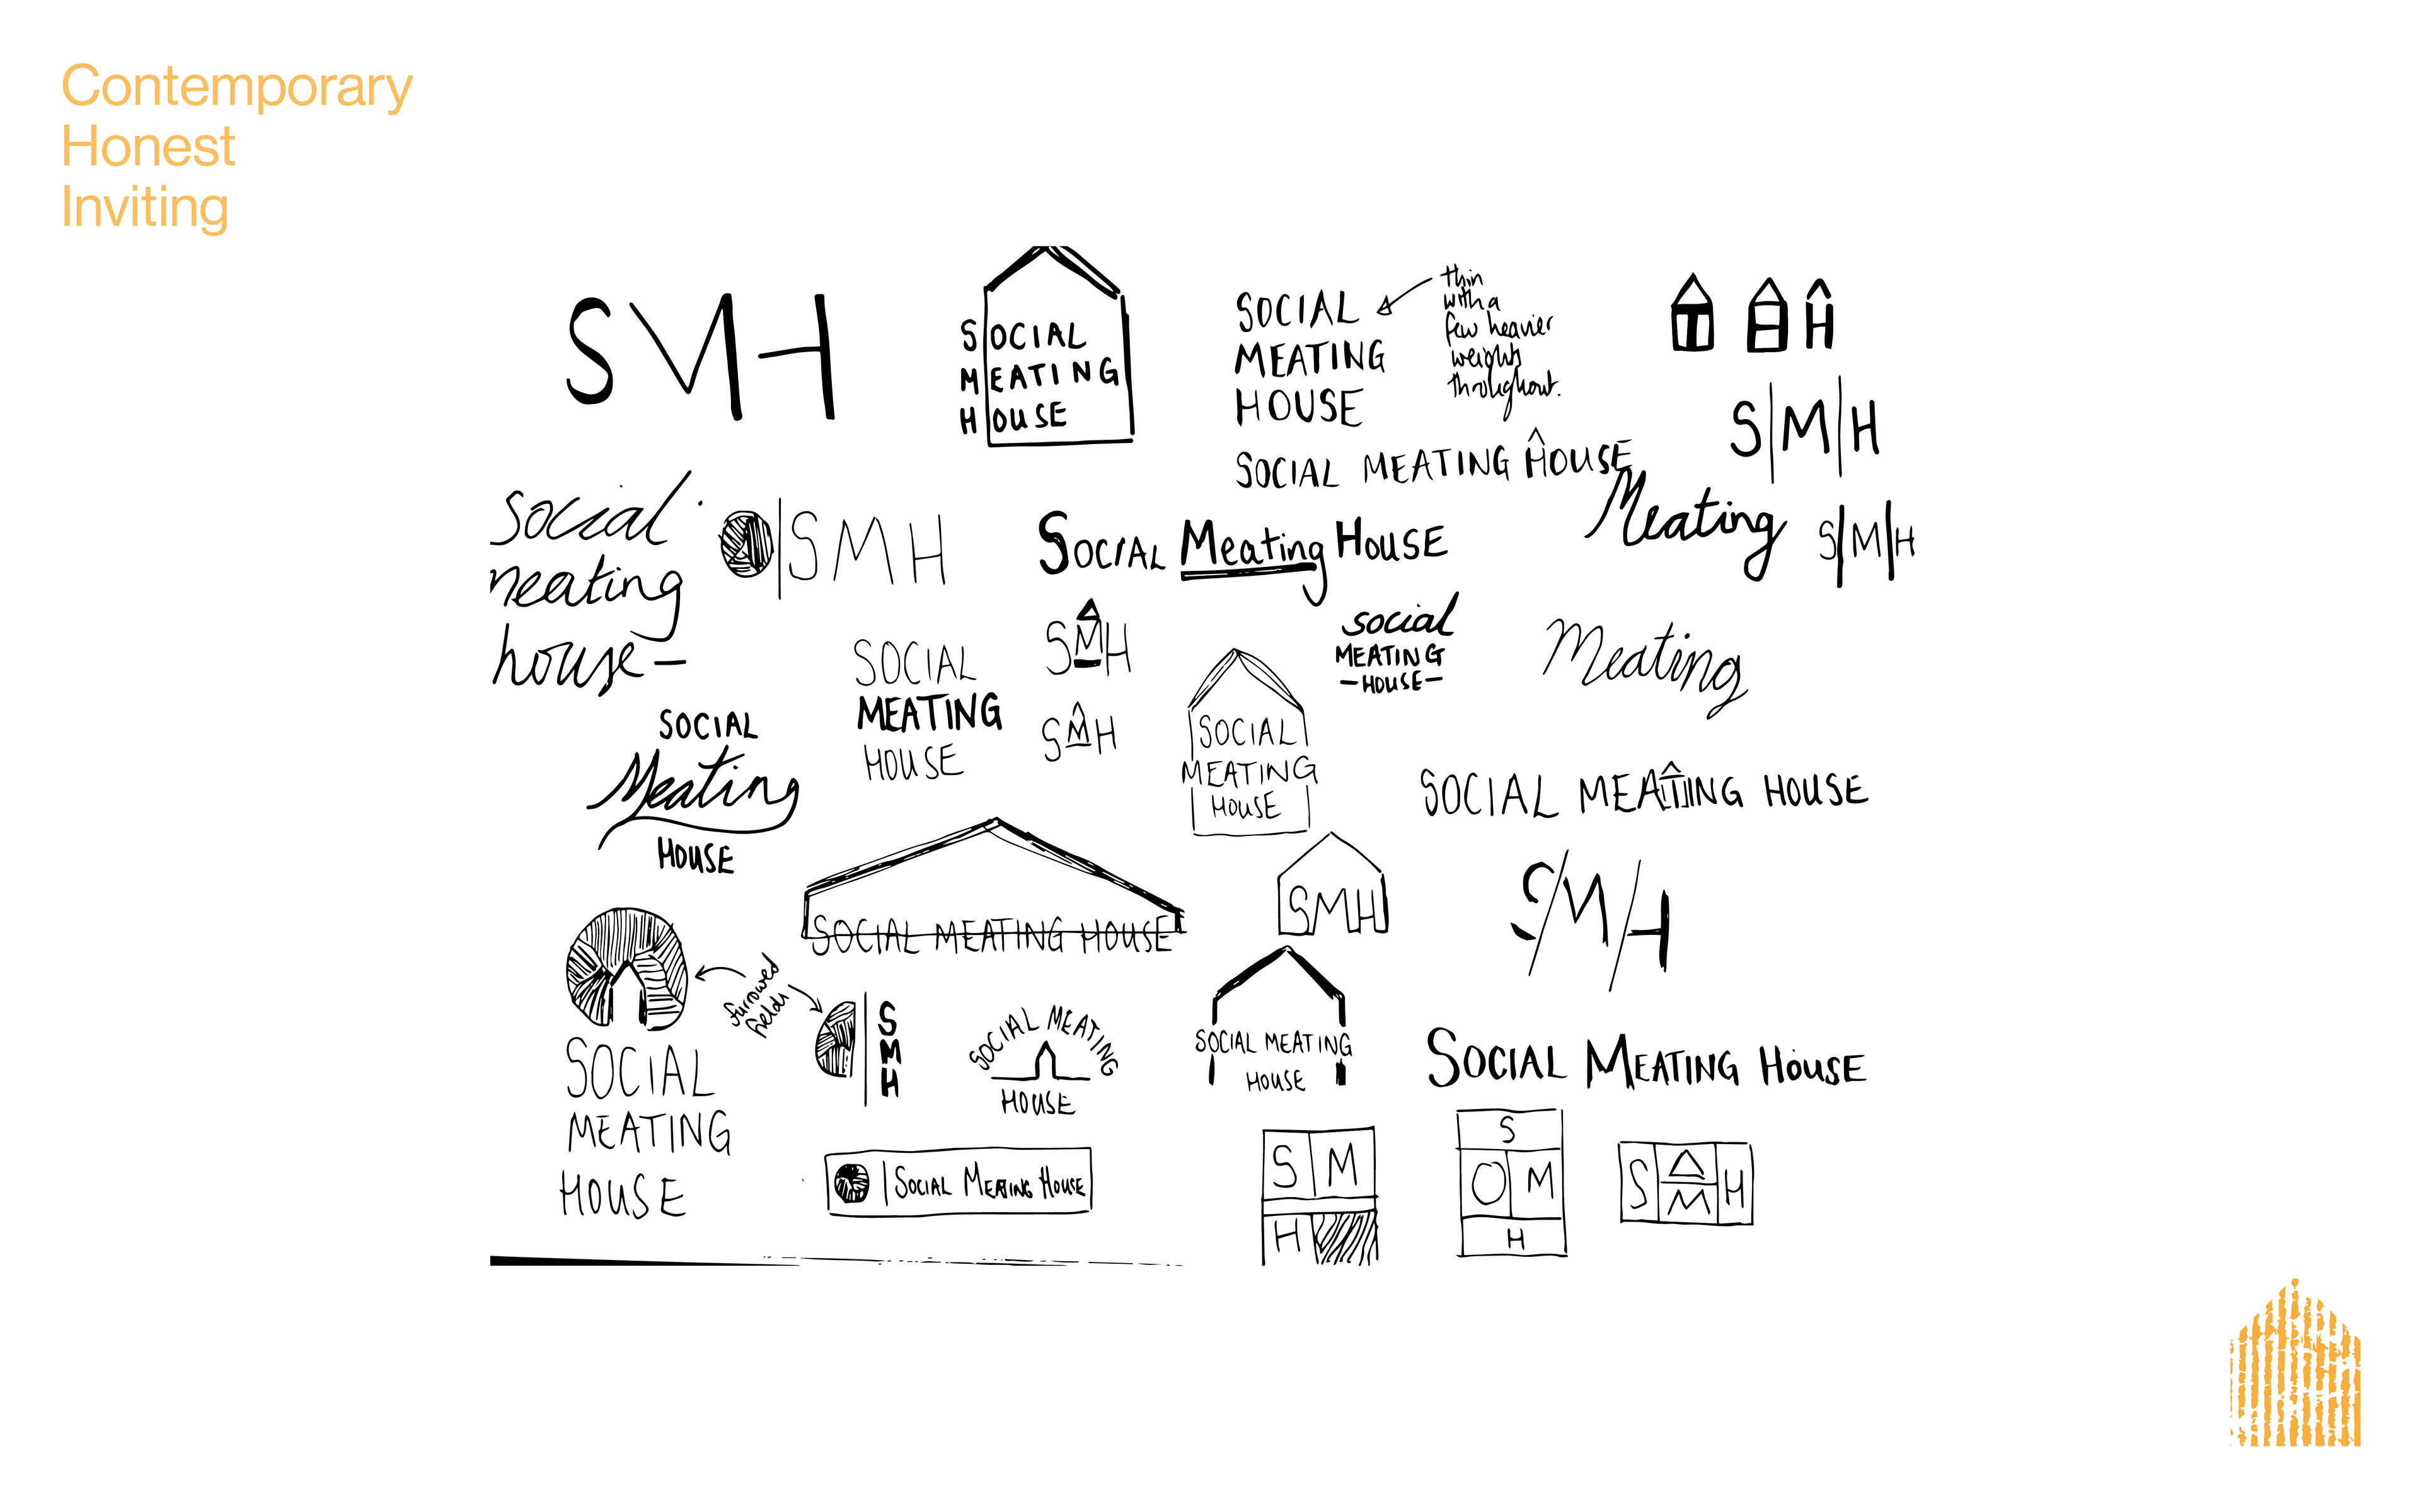 Contemporary
Honest
Inviting
SMH
SOCIAL
MEATING
HOUSE
SOCIAL
MEATING
HOUSE
thin
with a
few heavier
weights
throughout.
H
SOCIAL MEATING HOUSE
S|M|H
social
meating
house—
|SMH
SOCIAL Meating HOUSE
Meating
S|M|H
SOCIAL
MEATING
HOUSE
SMH
SMH
social
MEATING
—HOUSE—
Meating
SOCIAL
Meating
HOUSE
SOCIAL
MEATING
HOUSE
SOCIAL MEATING HOUSE
SOCIAL MEATING HOUSE
SMH
S/M/H
furrowed
fields
SOCIAL
MEATING
HOUSE
S
M
H
SOCIAL MEATING
HOUSE
SOCIAL MEATING
HOUSE
SOCIAL MEATING HOUSE
| SOCIAL MEATING HOUSE
S M
H
S
O M
H
S M H